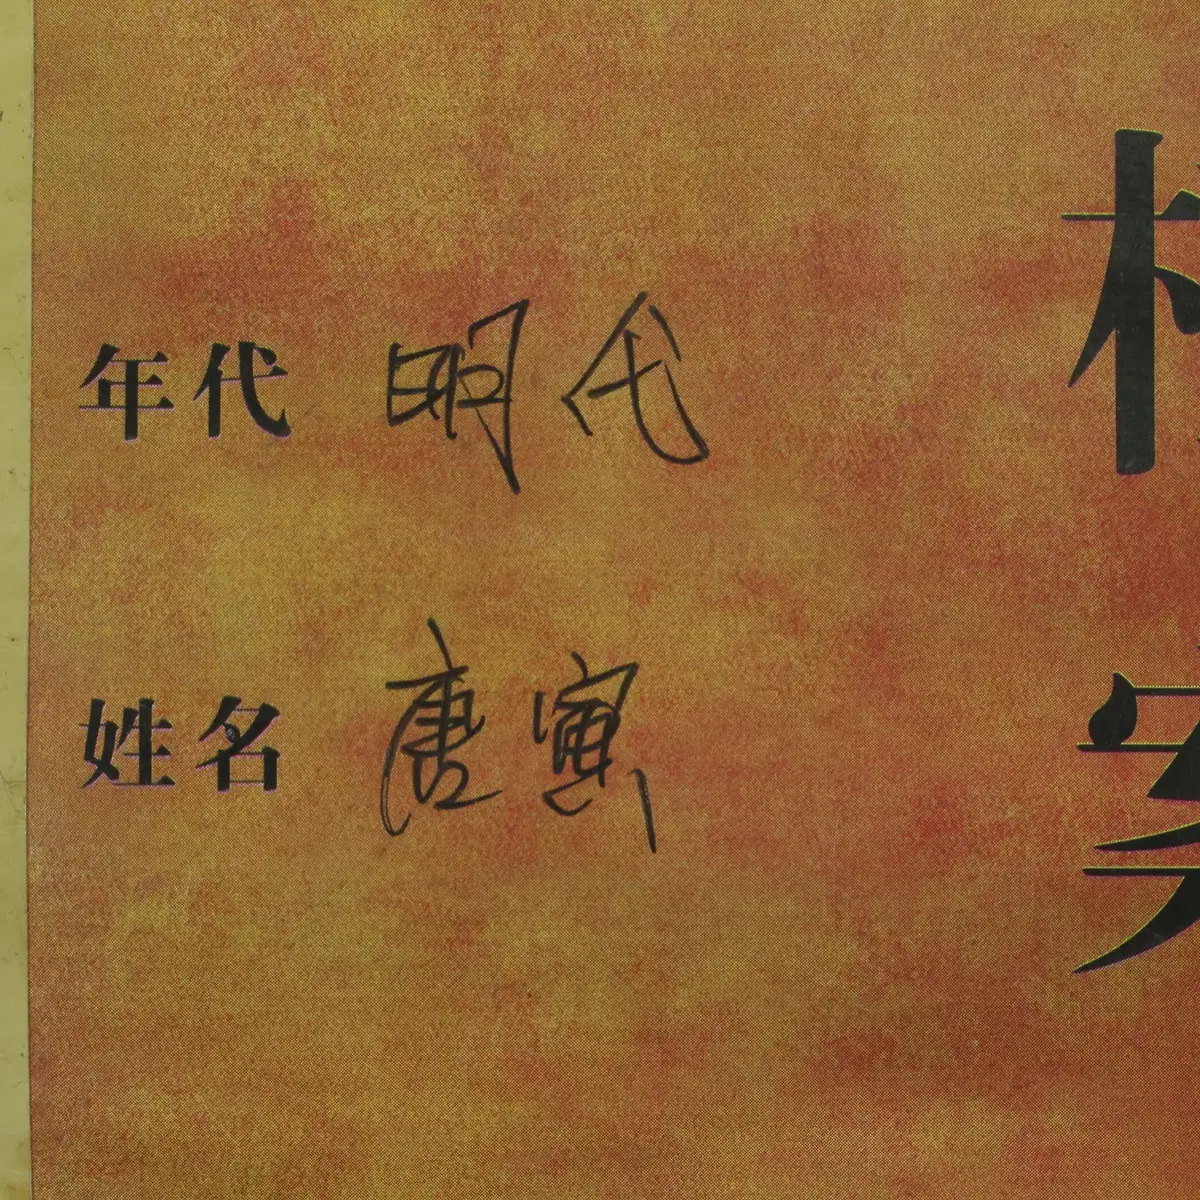 年代 明代
姓名 唐寅